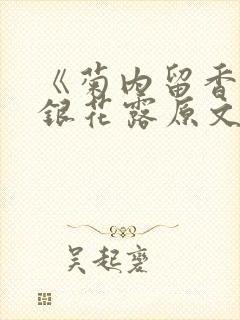 《菊内留香
銀花露原文
吴起襄